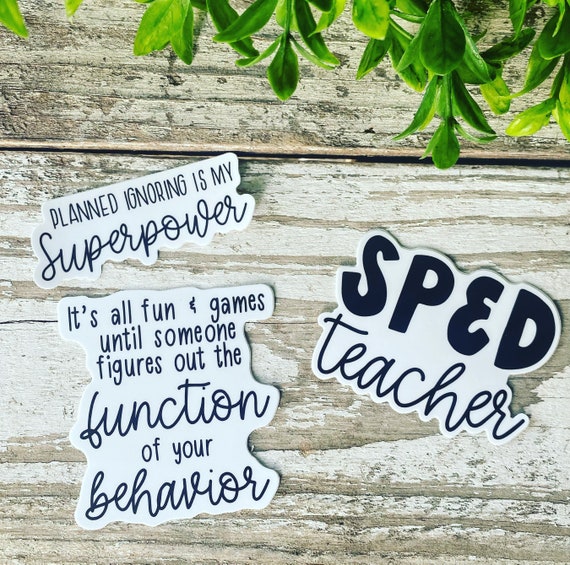 PLANNED IGNORING IS MY
Superpower
It's all fun & games
until someone
figures out the
function
of your
behavior
SPED
teacher